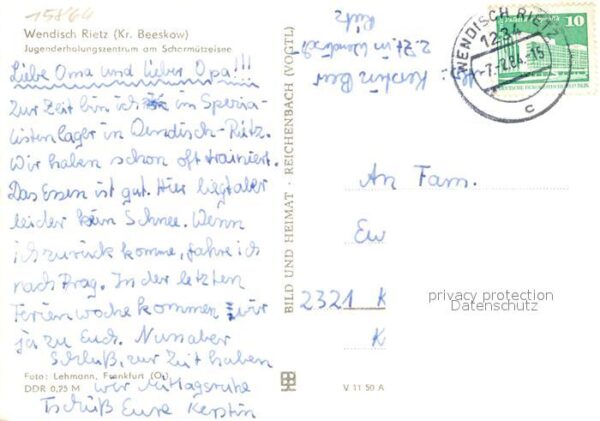 15864
Wendisch Rietz (Kr. Beeskow)
Jugenderholungszentrum am Scharmützelsee
Liebe Oma und lieber Opa!!!
Zur Zeit bin ich im Spezia-
listenlager in Wendisch-Rietz.
Wir haben schon oft trainiert.
Das Essen ist gut. Hier liegt aber
leider kein Schnee. Wenn
ich zurück komme, fahre ich
nach Prag. In der letzten
Ferienwoche kommen wir
ja zu Euch. Nun aber
Schluß, zur Zeit haben
wir Mittagsruhe
Tschüß Eure Kerstin
Foto: Lehmann, Frankfurt (O.)
DDR 0,75 M
BILD UND HEIMAT · REICHENBACH (VOGTL)
V 11 50 A
Kerstin
z. Zt in Wendisch
Rietz
WENDISCH RIETZ
1234
-7.-2.84.-15
c
10
An Fam.
Ew
2321 K
K
privacy protection
Datenschutz